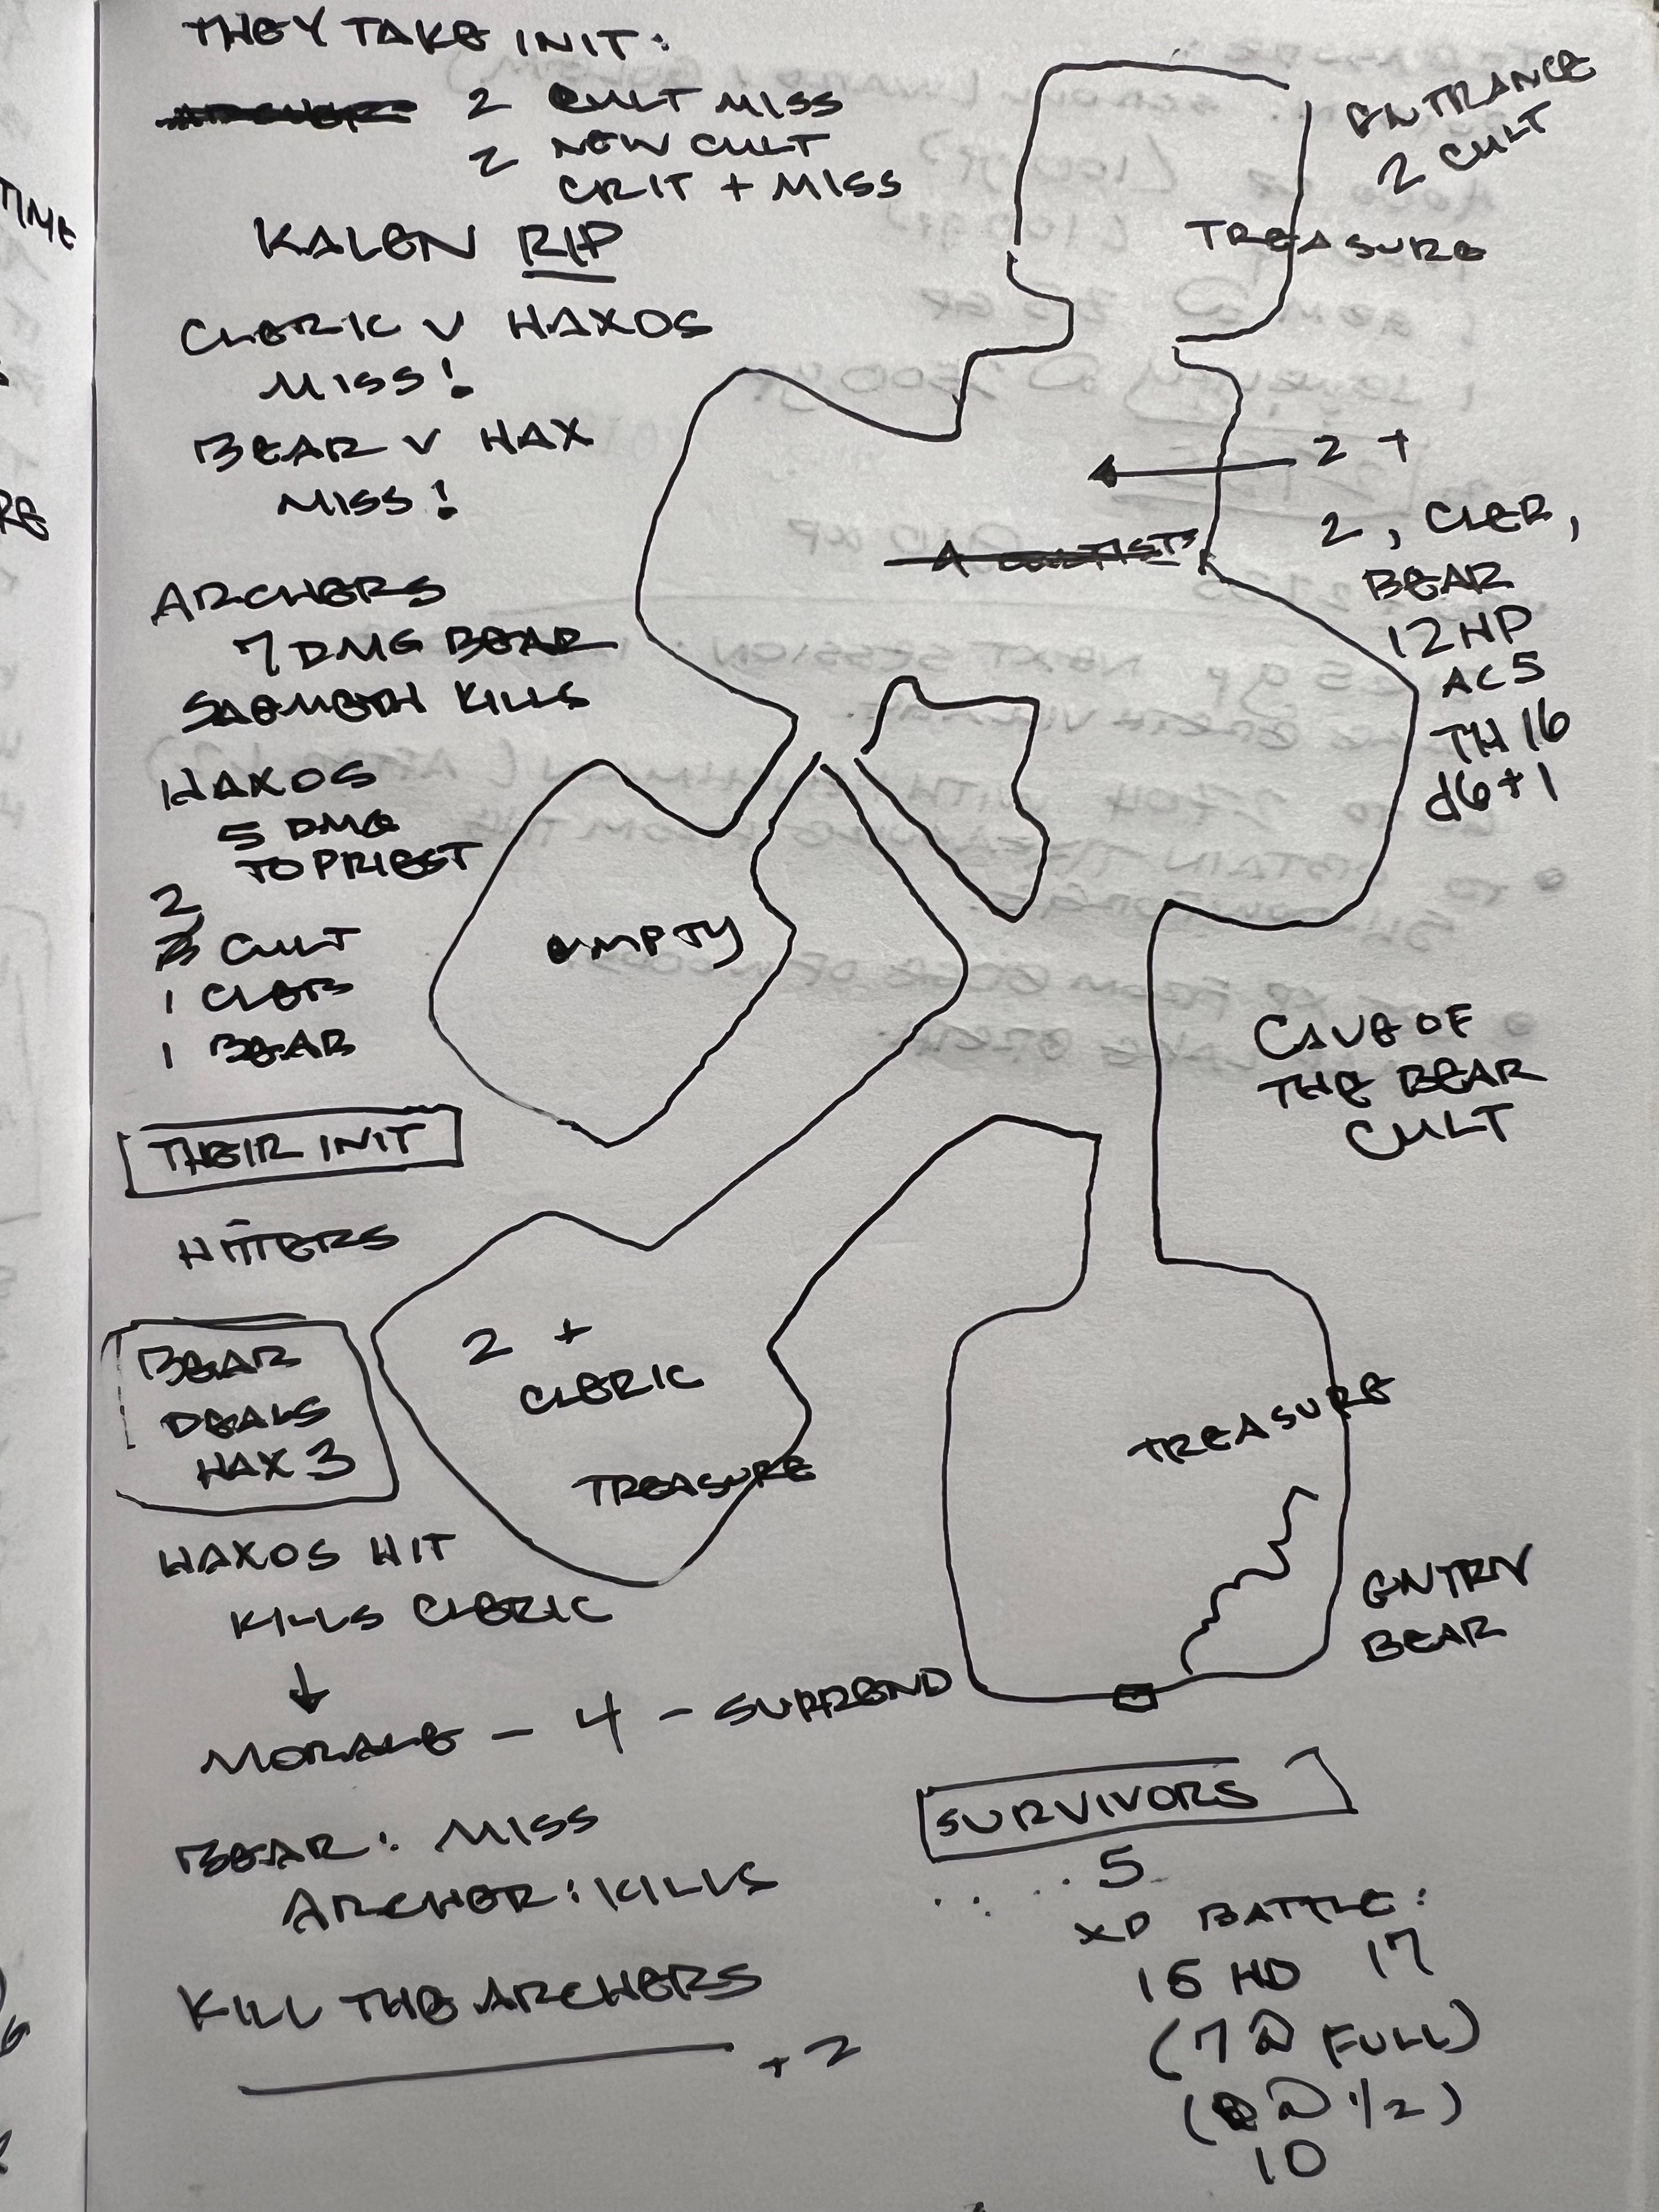 THEY TAKE INIT:
2 CULT MISS
2 NEW CULT
CRIT + MISS
KALEN RIP
CLERIC V HAXOS
MISS!
BEAR V HAX
MISS!
ARCHERS
7 DMG BEAR
SAEMETH KILLS
HAXOS
5 DMG
TO PRIEST
2
CULT
1 CLER
1 BEAR
THEIR INIT
HITTERS
BEAR
DEALS
HAX 3
HAXOS HIT
KILLS CLERIC
↓
MORALE - 4 - SURREND
BEAR: MISS
ARCHER: KILLS
KILL THE ARCHERS
+2
ENTRANCE
2 CULT
TREASURE
2 +
2, CLER,
BEAR
12 HP
AC 5
TH 16
d6+1
EMPTY
CAVE OF
THE BEAR
CULT
2 +
CLERIC
TREASURE
TREASURE
ENTRY
BEAR
SURVIVORS
5
XP BATTLE:
15 HD 17
(7 @ FULL)
@ 1/2)
10
TIME